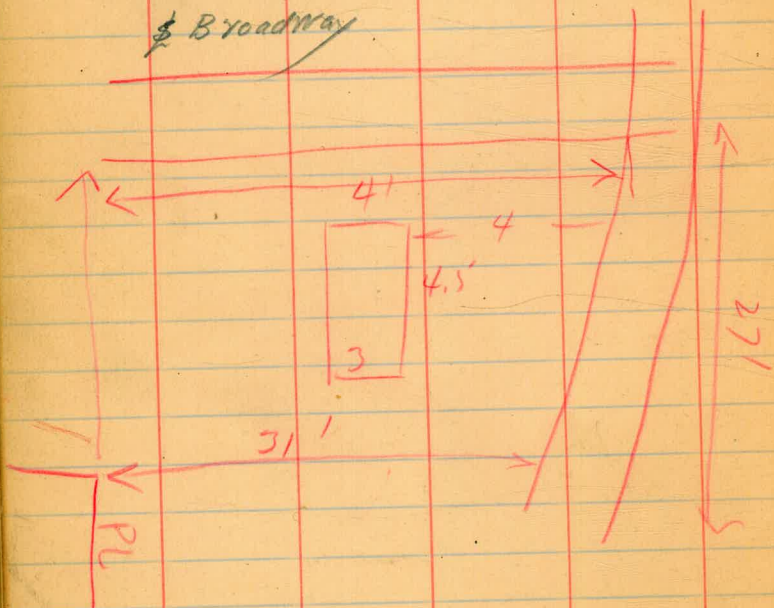 & Broadway
41
4
4.5
27'
3
31'
PL